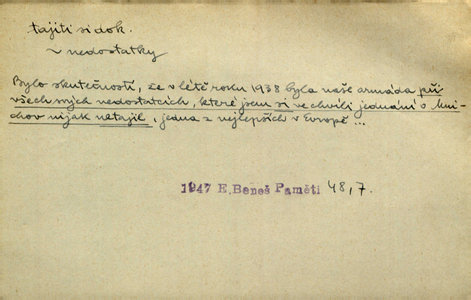 tajiti si dok.
~ nedostatky
Bylo skutečností, že v létě roku 1938 byla naše armáda při
všech svých nedostatcích, které jsem si ve chvíli jednání o Mni-
chov nijak netajil, jedna z nejlepších v Evropě ...
1947 E. Beneš Paměti 48,7.